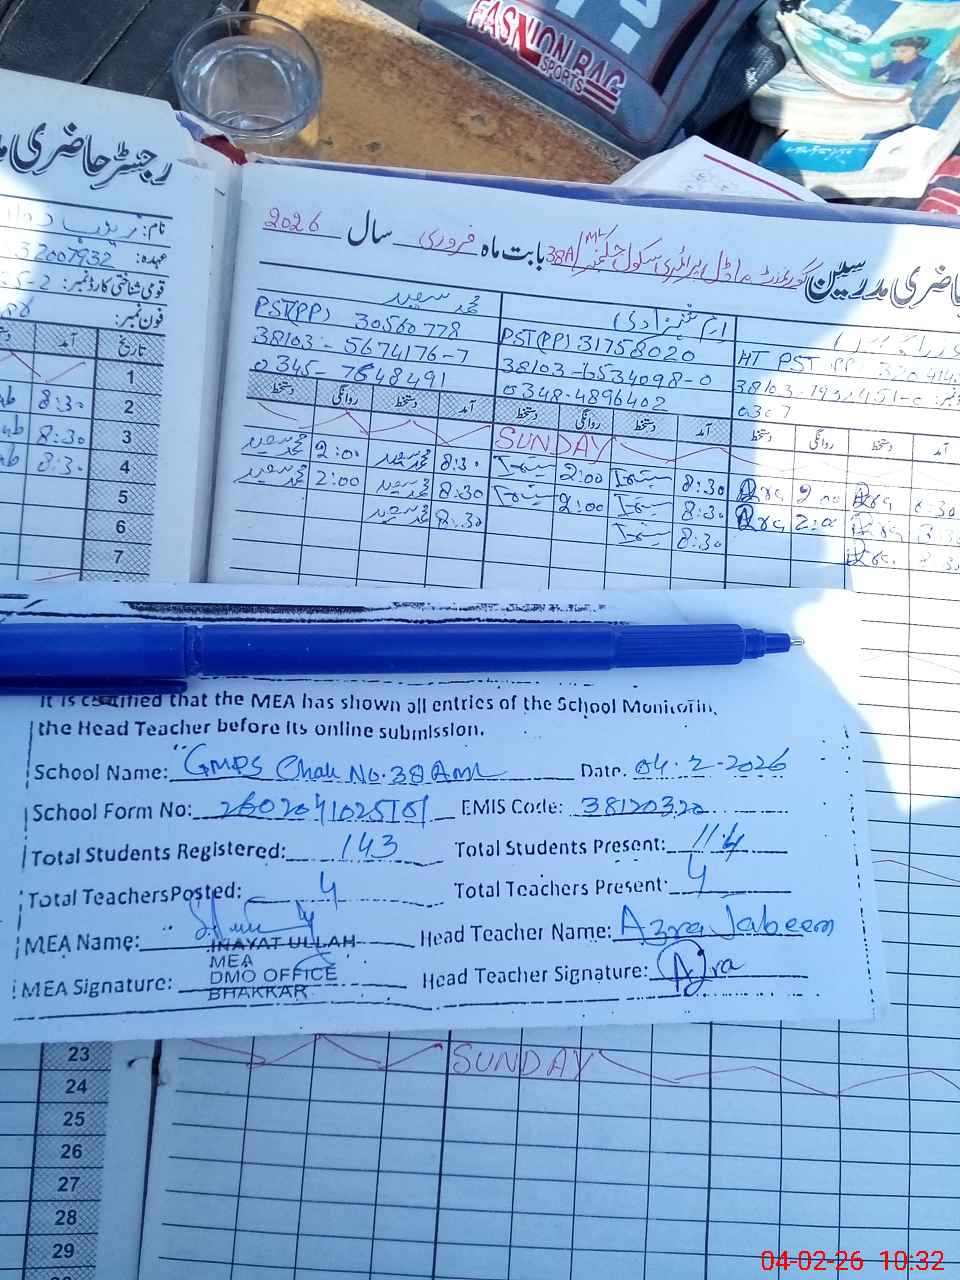 FASHION BAG
SPORTS
رجسٹر حاضری
نام:
عہدہ: 32007932
قومی شناختی کارڈ نمبر:
فون نمبر:
تاریخ
آمد
1
2 8:30
3 8:30
4 8:30
5
6
7
حاضری مدرسین گورنمنٹ ماڈل پرائمری سکول چک نمبر 38A/ML بابت ماہ فروری سال 2026
محمد سعید
PST(PP) 30560778
38103-5674176-7
0345-7648491
ارم شہزادی
PST(PP) 31758020
38103-6534098-0
0348-4896402
HT PST PP
0307
دستخط روانگی دستخط آمد دستخط روانگی دستخط آمد دستخط روانگی دستخط آمد
SUNDAY
محمد سعید 2:00 محمد سعید 8:30 2:00 8:30 Azra 2:00 Azra
محمد سعید 2:00 محمد سعید 8:30 2:00 8:30 Azra 2:00 Azra
محمد سعید 8:30 8:30 Azra
It is certified that the MEA has shown all entries of the School Monitorin
the Head Teacher before its online submission.
School Name: GMPS Chak No. 38 AML Date. 04-2-2026
School Form No: EMIS Code: 38120320
Total Students Registered: 143 Total Students Present: 114
Total Teachers Posted: 4 Total Teachers Present: 4
MEA Name: INAYAT ULLAH Head Teacher Name: Azra Jabeen
MEA
MEA Signature: DMO OFFICE Head Teacher Signature: Azra
BHAKKAR
23 SUNDAY
24
25
26
27
28
29
04-02-26 10:32